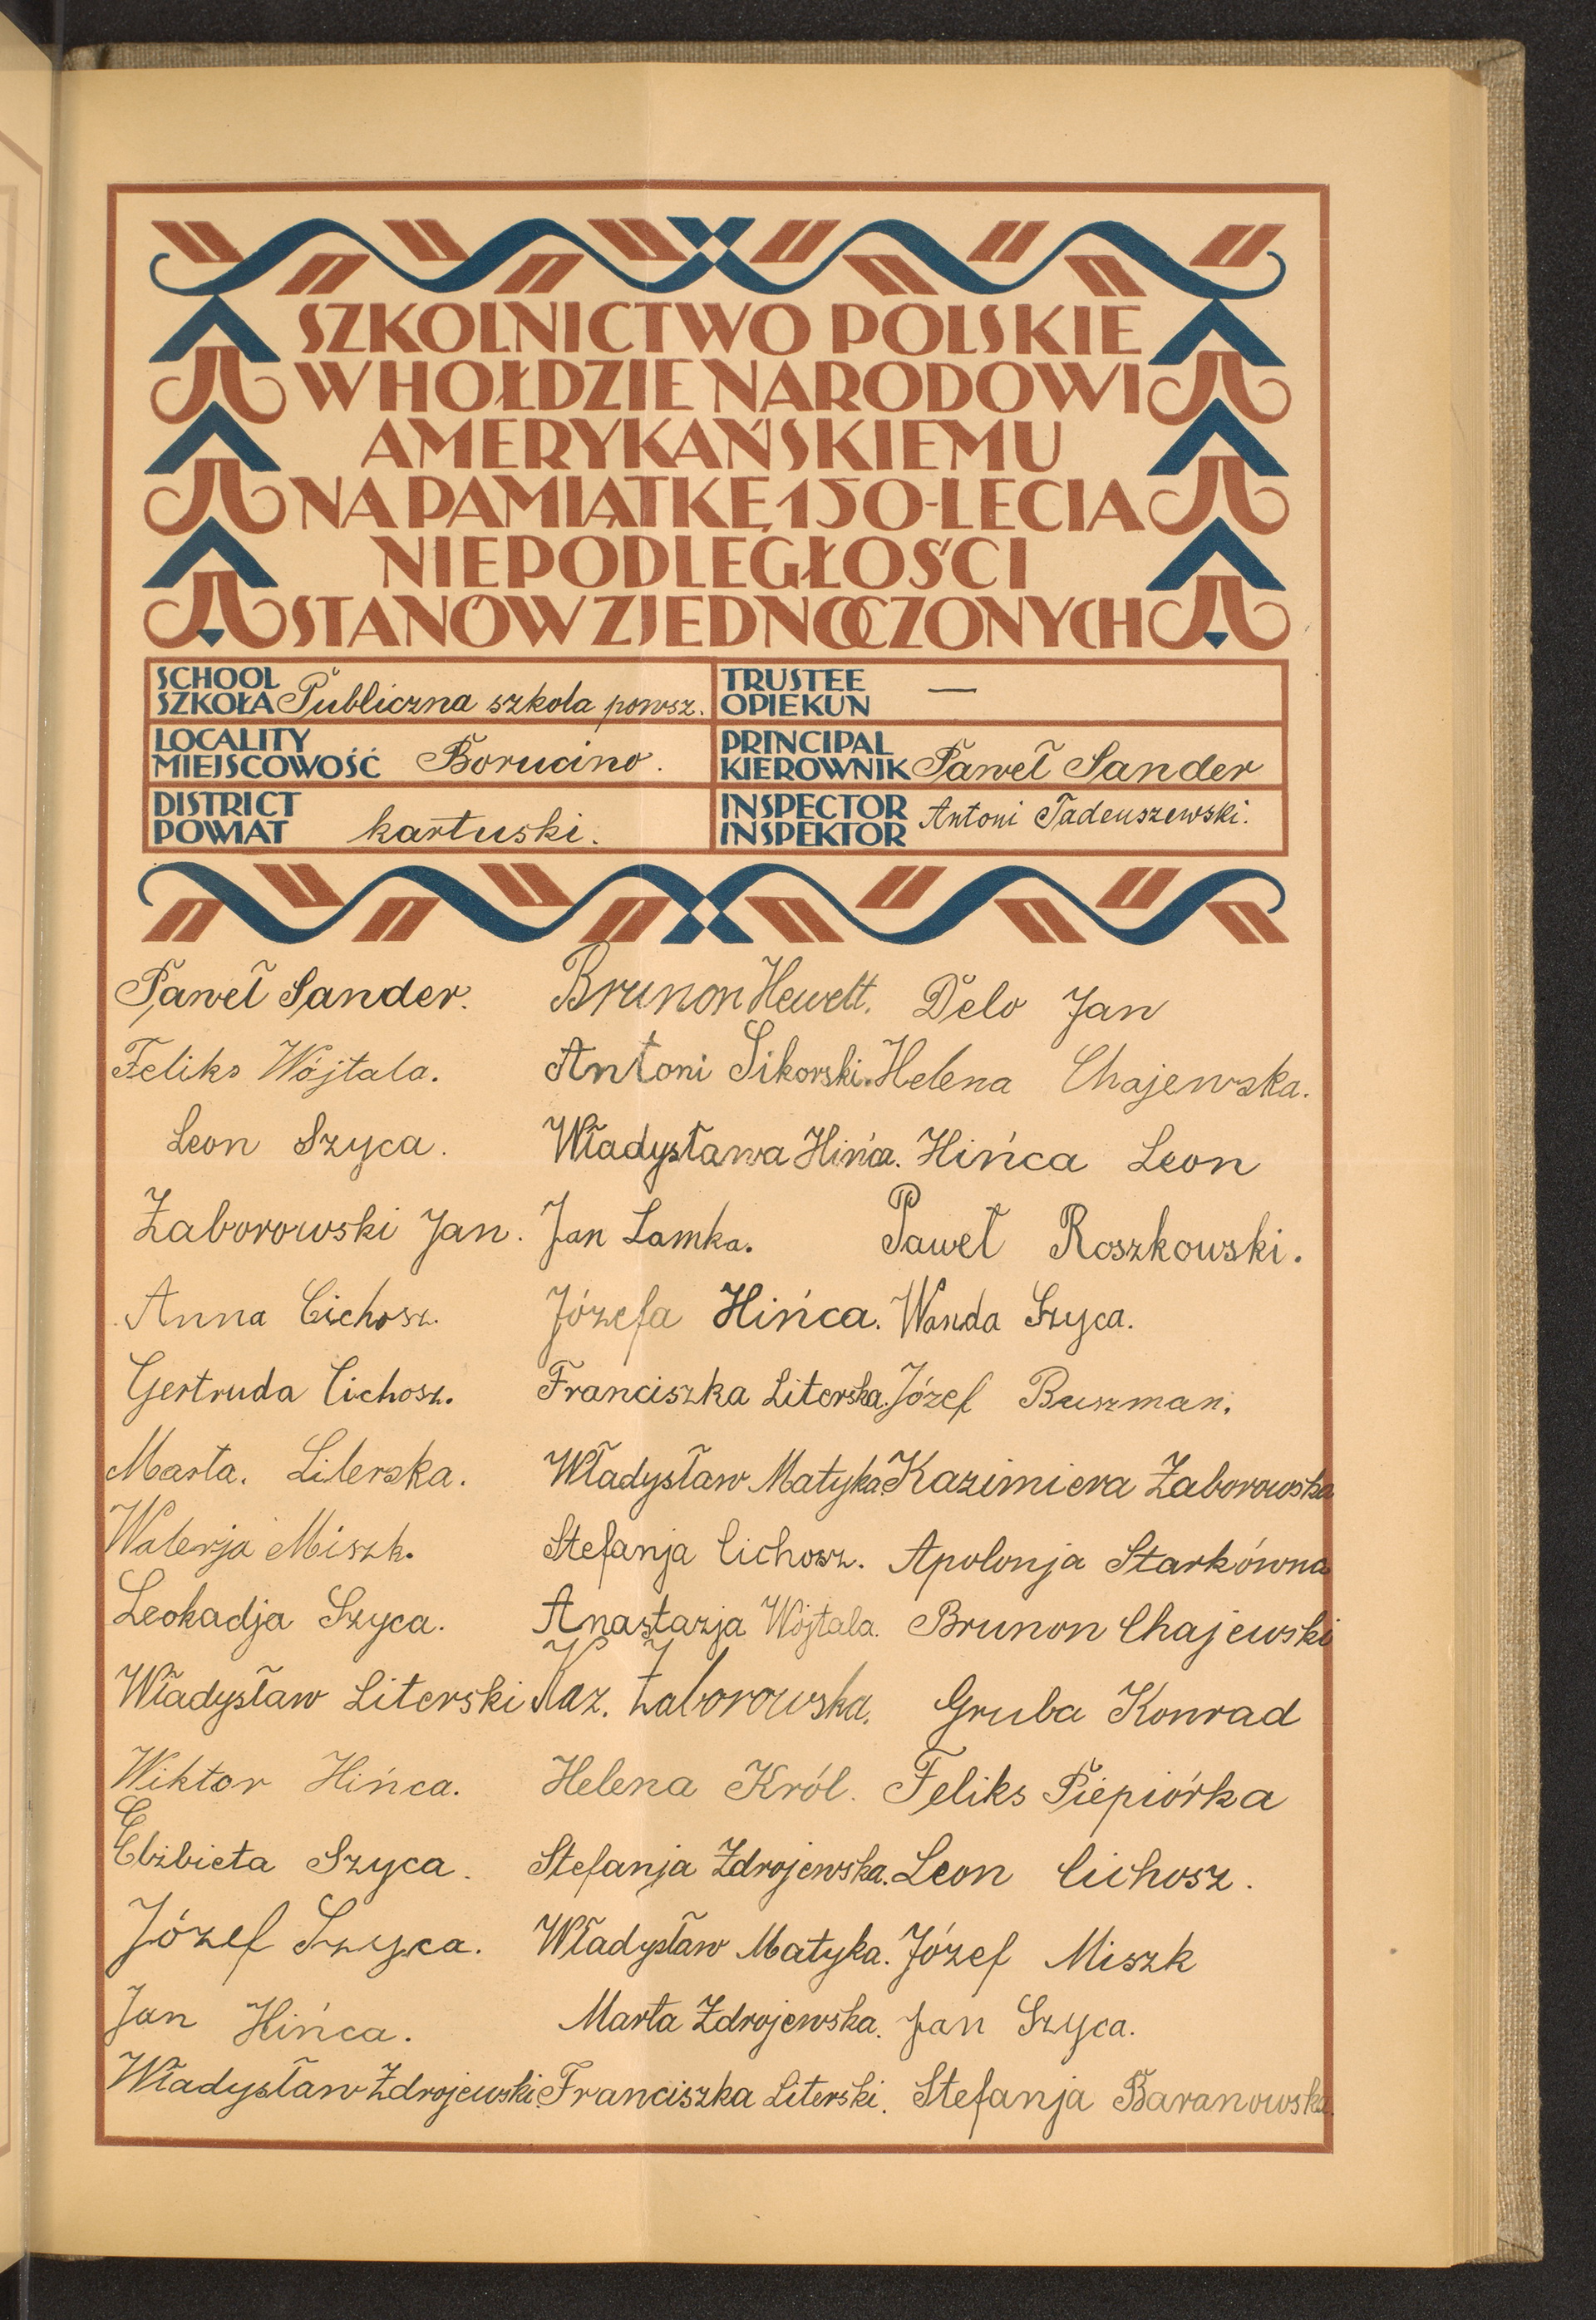 SZKOLNICTWO POLSKIE
W HOŁDZIE NARODOWI
AMERYKAŃSKIEMU
NA PAMIĄTKĘ 150-LECIA
NIEPODLEGŁOŚCI
STANÓW ZJEDNOCZONYCH
SCHOOL
SZKOŁA Publiczna szkoła powsz.
TRUSTEE
OPIEKUN —
LOCALITY
MIEJSCOWOŚĆ Borucino.
PRINCIPAL
KIEROWNIK Paweł Sander
DISTRICT
POWIAT kartuski.
INSPECTOR
INSPEKTOR Antoni Tadeuszewski.
Paweł Sander.
Feliks Wójtala.
Leon Szyca.
Zaborowski Jan.
Anna Cichosz.
Gertruda Cichosz.
Marta. Literska.
Walerja Miszk.
Leokadja Szyca.
Władysław Literski
Wiktor Hińca.
Elżbieta Szyca.
Józef Szyca.
Jan Hińca.
Władysław Zdrojewski.
Brunon Hewelt.
Antoni Sikorski.
Władysława Hińca.
Jan Lamka.
Józefa Hińca.
Franciszka Literska.
Władysław Matyka.
Stefanja Cichosz.
Anastazja Wójtala.
Kaz. Zaborowska.
Helena Król.
Stefanja Zdrojewska.
Władysław Matyka.
Marta Zdrojewska.
Franciszka Literski.
Delo Jan
Helena Chajewska.
Hińca Leon
Paweł Roszkowski.
Wanda Szyca.
Józef Buszman.
Kazimiera Zaborowska
Apolonja Starkówna
Brunon Chajewski
Gruba Konrad
Feliks Piepiórka
Leon Cichosz.
Józef Miszk
Jan Szyca.
Stefanja Baranowska.